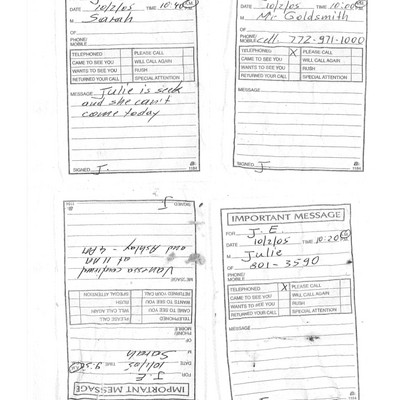 DATE 10/2/05 TIME 10:40
M Sarah
OF
PHONE/
MOBILE
TELEPHONED PLEASE CALL
CAME TO SEE YOU WILL CALL AGAIN
WANTS TO SEE YOU RUSH
RETURNED YOUR CALL SPECIAL ATTENTION
MESSAGE Julie is seek
and she can't
come today
SIGNED J. 1184
DATE 10/2/05 TIME 10:00
M Mr Goldsmith
OF
PHONE/
MOBILE cell 772-971-1000
TELEPHONED X PLEASE CALL
CAME TO SEE YOU WILL CALL AGAIN
WANTS TO SEE YOU RUSH
RETURNED YOUR CALL SPECIAL ATTENTION
MESSAGE
SIGNED J. 1184
IMPORTANT MESSAGE
FOR J.E.
DATE 10/2/05 TIME
M Sarah
OF
PHONE/
MOBILE
TELEPHONED PLEASE CALL
CAME TO SEE YOU WILL CALL AGAIN
WANTS TO SEE YOU RUSH
RETURNED YOUR CALL SPECIAL ATTENTION
MESSAGE
Vanessa confirmed
at 11 AM
and Ashley - 4 PM
SIGNED J 1184
IMPORTANT MESSAGE
FOR J.E.
DATE 10/2/05 TIME 10:20
M Julie
OF 801-3590
PHONE/
MOBILE
TELEPHONED X PLEASE CALL
CAME TO SEE YOU WILL CALL AGAIN
WANTS TO SEE YOU RUSH
RETURNED YOUR CALL SPECIAL ATTENTION
MESSAGE
SIGNED J. 1184